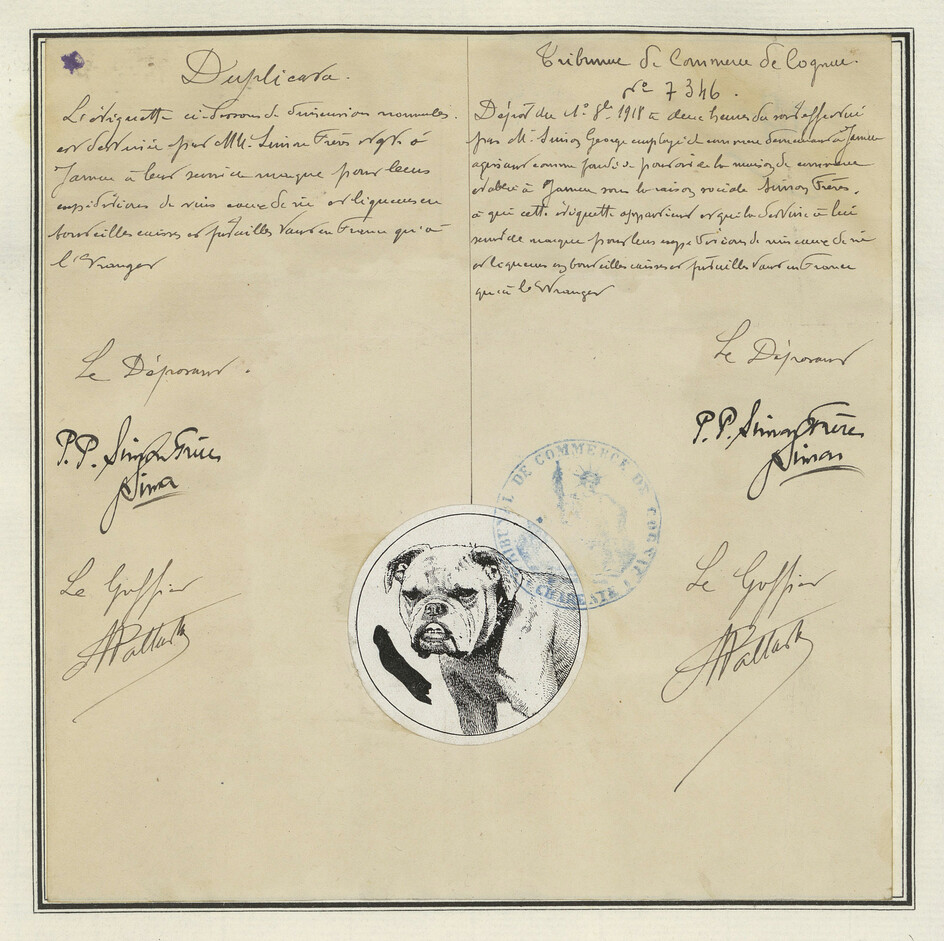 Duplicata.
L'étiquette ci-dessous de dimension normales.
est destinée par MM. Simon Frères ngts à
Jarnac à leur servir de marque pour leurs
expéditions de vins eaux de vie et liqueurs en
bouteilles caisses et futailles tant en France qu'à
l'Etranger
Le Déposant.
P.P. Simon Frères
Simon
Le Greffier
Tribunal de Commerce de Cognac.
No 7346.
Dépôt du 1er 8bre 1918 à deux heures du soir effectué
par M. Simon George employé de commerce demeurant à Jarnac
agissant comme fondé de pouvoir de la maison de commerce
établie à Jarnac sous la raison sociale Simon Frères.
à qui cette étiquette appartient et qui la destine à lui
servir de marque pour leurs expéditions de vins eaux de vie
et liqueurs en bouteilles caisses et futailles tant en France
qu'à l'Etranger
Le Déposant
P.P. Simon Frères
Simon
Le Greffier
TRIBUNAL DE COMMERCE DE COGNAC
(CHARENTE)